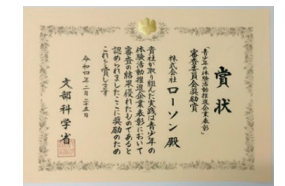 賞状
「青少年の体験活動推進企業表彰」
審査委員会奨励賞
株式会社 ローソン殿
貴社が取り組んだ実践は青少年の
体験活動推進企業表彰において
審査の結果優れたものであると
認められましたここに奨励のため
これを賞します
令和四年二月二十五日
文部科学省